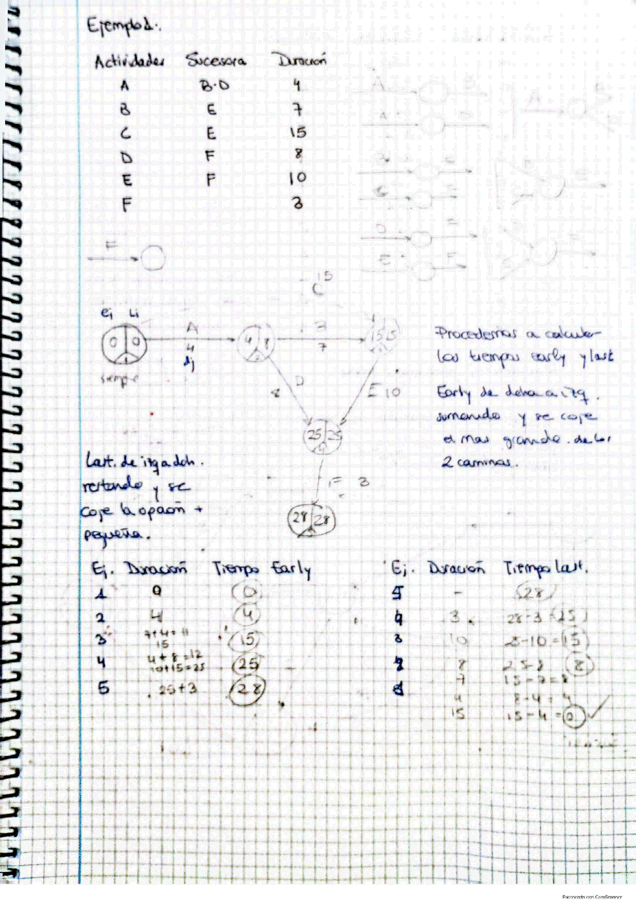 Ejemplo 1.
Actividades Sucesora Duración
A B-D 4
B E 7
C E 15
D F 8
E F 10
F 3
F
15
C
Ei Li
A
4
dj
0 0
1
siempre
4 8
7
15 15
D
8
E 10
25 25
F 3
28 28
Procedemos a calcular
los tiempos early y last
Early de dcha a izq.
sumando y se coje
el mas grande de los
2 caminos.
Last. de izq a dch.
restando y se
coje la opción +
pequeña.
Ej. Duración Tiempo Early
1 0 0
2 4 4
3 7+4=11 15
15
4 4+8=12 25
10+15=25
5 25+3 28
Ej. Duración Tiempo last.
5 - 28
4 3 28-3
3 10 25-10=15
8 25-8 8
7 15-7=8
4 8-4=4
15 =0